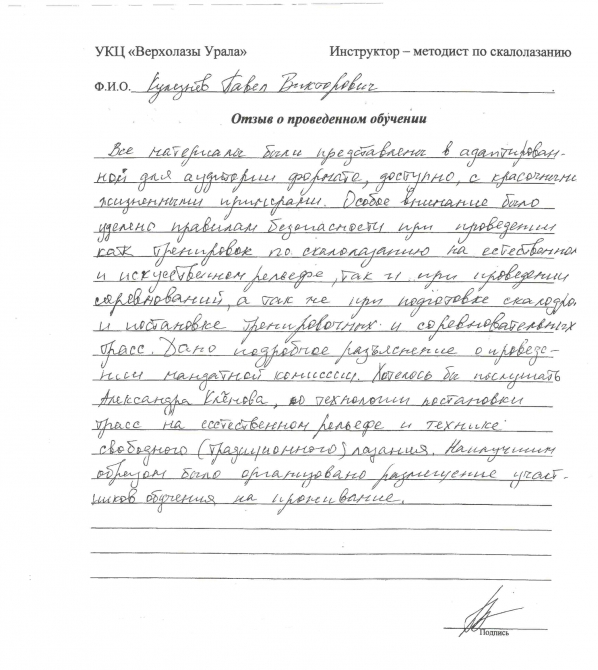 УКЦ «Верхолазы Урала» Инструктор – методист по скалолазанию
Ф.И.О. Павел Викторович
Отзыв о проведенном обучении
Все материалы были представлены в адаптирован-
ной для аудитории формате, доступно, с красочными
жизненными примерами. Особое внимание было
уделено правилам безопасности при проведении
как тренировок по скалолазанию на естественном
и искусственном рельефе, так и при проведении
соревнований, а так же при подготовке скалодро
и постановке тренировочных и соревновательных
трасс. Дано подробное разъяснение о проведе-
нии мандатной комиссии. Хотелось бы послушать
Александра Клёнова, по технологии постановки
трасс на есстественном рельефе и технике
свободного (традиционного) лазания. Наилучшим
образом было организовано размещение участ-
ников обучения на проживание.
Подпись